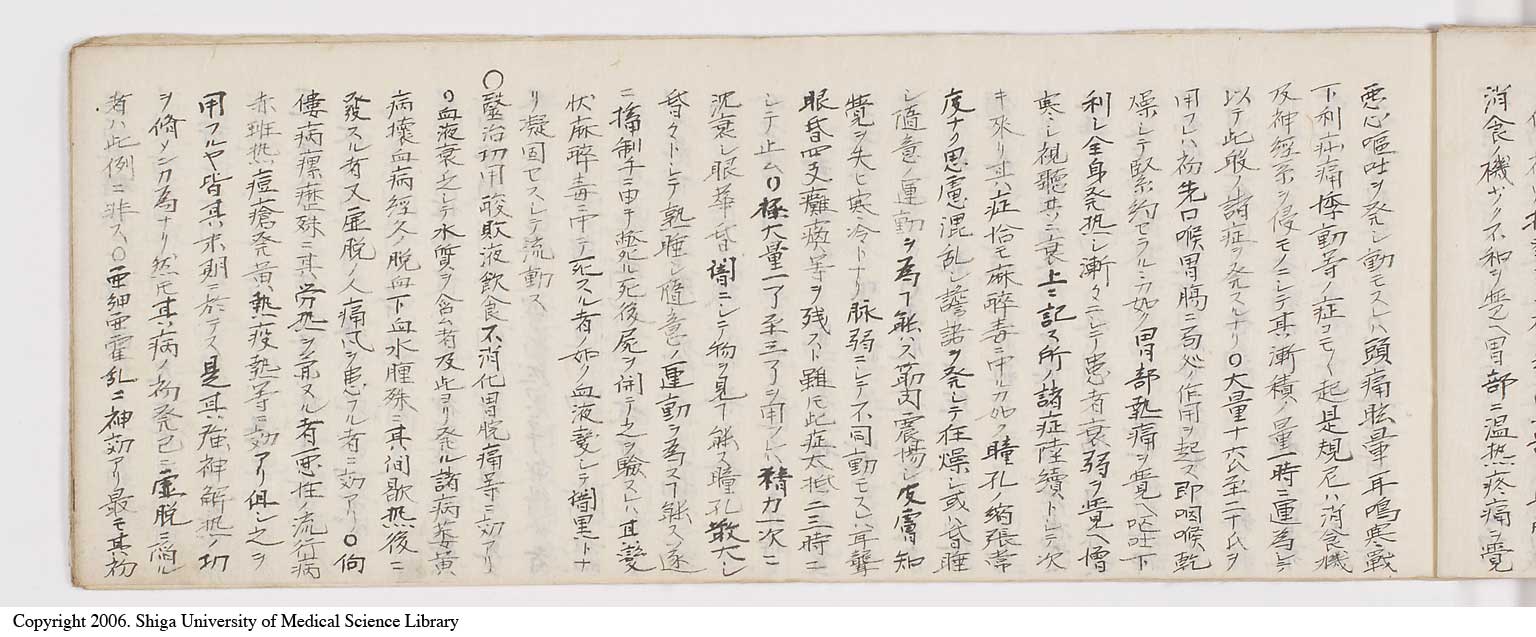 消食機サク不和ヲ覚ヘ胃部ニ温熱疼痛ヲ覚
悪心嘔吐ヲ発シ動モスレハ頭痛眩暈耳鳴寒戦
下利疝痛悸動等ノ症コモ〱起是規尼ハ消食機
及神経系ヲ侵モノニシテ其漸積ノ量一時ニ運為シ
以テ此般ノ諸症ヲ発スルナリ〇大量十六氏至二十氏ヲ
用フレハ初先口喉胃腸ニ局処ノ作用ヲ起ス即咽喉乾
燥シテ緊約セラルヽカ如ク胃部熱痛ヲ覚ヘ吐下
利シ全身発熱シ漸々ニシテ患者衰弱ヲ覚ヘ憎
寒シ視聴共ニ衰上ニ記ル所ノ諸症陸続トシテ次
キ来リ其症恰モ麻酔毒ニ中ルカ如ク瞳孔ノ縮張常
度ナク思慮混乱シ譫語ヲ発シテ狂燥シ或ハ昏睡
シ適意ノ運動ヲ為ヿ能ハス筋肉震搐シ皮膚知
覚ヲ失ヒ寒冷トナリ脉弱ニシテ不同動モスレハ耳聾
眼昏四支癱瘓等ヲ残スト雖𪜈此症大抵二三時ニ
シテ止ム〇極大量一了至三了ヲ用フレハ精力一次ニ
沈衰シ眼華昏闇ニシテ物ヲ見ヿ能ス瞳孔散大シ
昏々トシテ熟睡シ随意ノ運動ヲ為スヿ能ス遂
ニ搐制チニ由テ斃ル死後屍ヲ開テ之ヲ験スルハ其変
状麻酔毒ニ中テ死スル者ノ如ク血液変シテ闇黒トナ
リ凝固セスシテ流動ス
〇医治功用酸敗液飲食不消化胃脘痛等ニ効アリ
〇血液衰乏シテ水質ヲ含ム者及此ヨリ発ル諸病萎黄
病壊血病経久ノ脱血下血水腫殊ニ其間歇熱後ニ
発スル者又虚脱ノ人痛風ヲ患フル者ニ効アリ〇佝
僂病瘰癧殊ニ其労熱ヲ兼ヌル者悪性ノ流行病
赤斑熱痘瘡発黄熱疫熱等ニ効アリ但シ之ヲ
用フルヤ皆其末期ニ於テス是其強神解熱ノ功
ヲ脩メンカ為ナリ然𪜈其病ノ初発已ニ虚脱ニ陥ル
者ハ此例ニ非ス〇亜細亜霍乱ニ神効アリ最モ其初
Copyright 2006. Shiga University of Medical Science Library